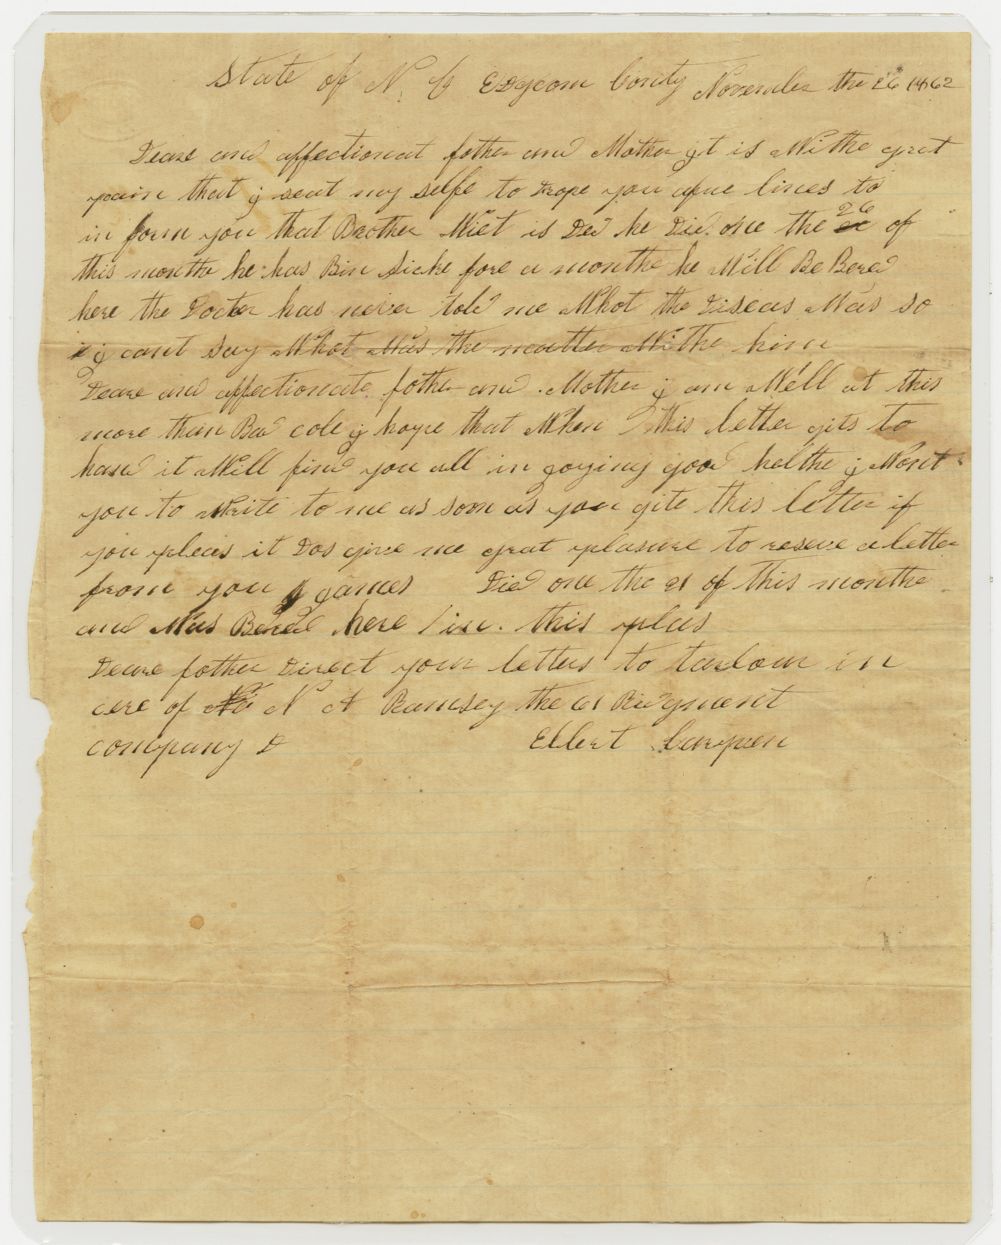 State of N. C Edgcom Conty November the 26 1862
Deare and affectionat father and Mother it is Withe grat
pain that i seat my selfe to Drope you afue lines to
in form you that Brother Wiet is Ded he Died one the 26 of
this monthe he has Bin Sicke fore a monthe he Will Be Bered
here the Docter has never told me What the Diseas Was so
i cant say What Was the matter Withe him
Deare and affectionate father and Mother i am Well at this
more than Bad cole i hope that When this letter gits to
hand it Will find you all in goying good helthe i Wont
you to Write to me as soon as you gite this letter if
you pleas it Dos give me grat plasure to reseve a letter
from you James Died one the 21 of this monthe
and Was Bered here in this plas
Deare father Direct your letters to tarlow in
cere of N A Ramsey the 61 Rigyment
company D Elbert Carpen